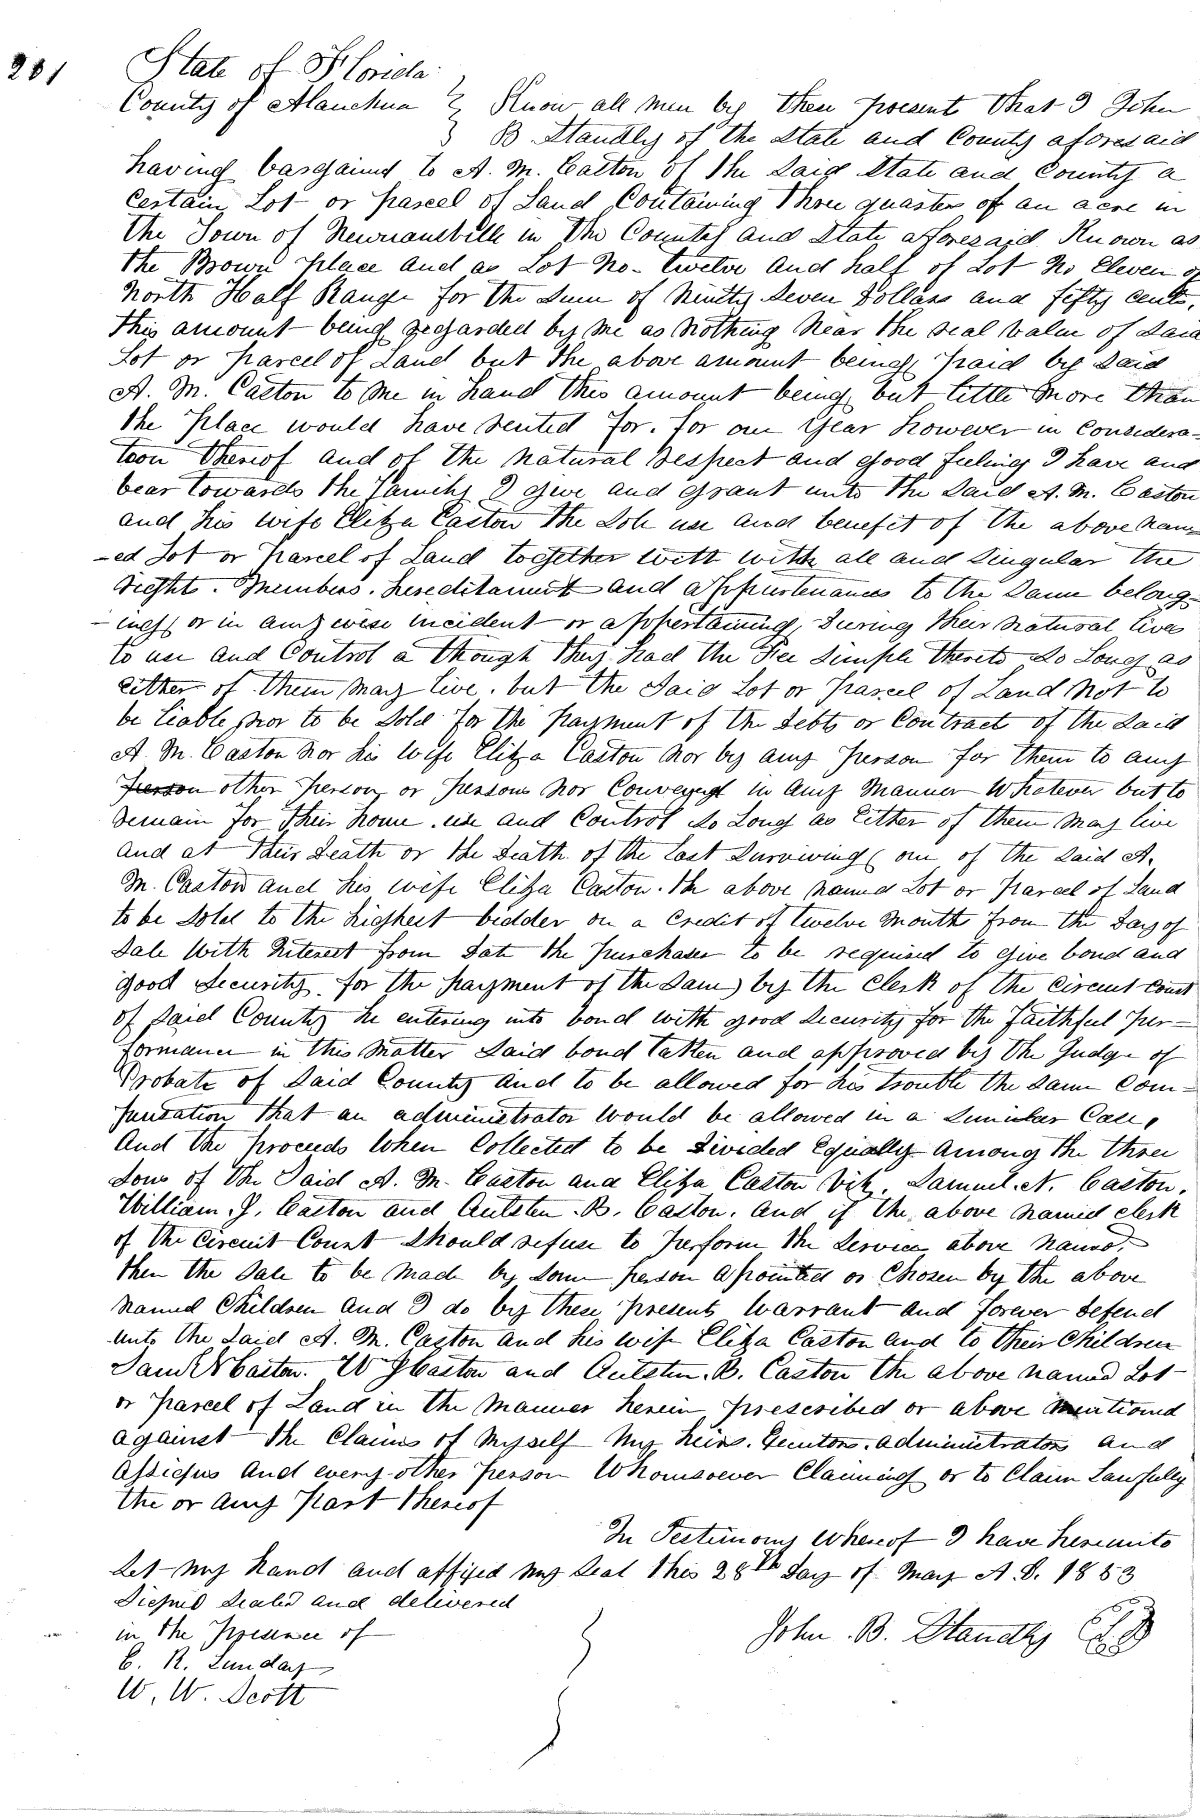 201
State of Florida
County of Alauchua } Know all men by these present that I John
B Standly of the State and County aforesaid
having bargained to A. M. Caston of the Said State and County a
Certain Lot or parcel of Land Containing Three quarters of an acre in
the Town of Newnansville in the County and State aforesaid Known as
the Brown place and as Lot No- twelve and half of Lot No Eleven of
North Half Range for the Sum of Ninety Seven Dollars and fifty cents,
this amount being regarded by me as nothing near the real value of Said
Lot or parcel of Land but the above amount being paid by Said
A. M. Caston to me in hand this amount being but little more than
the place would have rented for. for one Year however in Considera-
tion thereof and of the natural respect and good feelings I have and
bear towards the family I give and grant unto the Said A. M. Caston
and his wife Eliza Caston the Sole use and benefit of the above nam-
-ed Lot or parcel of Land together with with all and Singular the
rights. Members. hereditament and appurtenances to the Same belong-
-ing or in any wise incident or appertaining, During their natural lives
to use and Control a though they had the Fee Simple thereto So Long as
either of them may live. but the Said Lot or parcel of Land not to
be liable nor to be Sold for the payment of the Debts or Contract of the Said
A. M. Caston nor his wife Eliza Caston nor by any person for them to any
person other person or persons nor Conveyed in any Manner Whatever but to
remain for their home. use and Control So Long as Either of them may live
and at their Death or the Death of the Last Surviving one of the Said A.
M. Caston and his wife Eliza Caston. the above named Lot or parcel of Land
to be Sold to the highest bidder on a Credit of twelve Month from the Day of
Sale With Interest from Date the purchaser to be required to give bond and
good Security for the payment of the Same) by the Clerk of the Circuit Court
of Said County he entering into bond with good Security for the faithful per-
formance in this Matter Said bond taken and approved by the Judge of
Probate of Said County and to be allowed for his trouble the Same Com-
pensation that an administrator would be allowed in a Similar Case,
And the proceeds When Collected to be Divided Equally among the three
Sons of the Said A. M. Caston and Eliza Caston Viz. Samuel. N. Caston.
William. J. Caston and Autsten. B. Caston. and if the above named clerk
of the Circuit Court Should refuse to perform the Services above named.
then the Sale to be Made by Some person appointed or Chosen by the above
named Children and I do by these presents Warrant and forever Defend
unto the Said A. M. Caston and his wife Eliza Caston and to their Children
Saml N Caston. W J Caston and Autsten. B. Caston the above named Lot
or parcel of Land in the Manner herein prescribed or above Mentioned
against the Claims of Myself My heirs. Executors. administrators and
assigns and every other person Whomsoever Claiming or to Claim Lawfully
the or any part thereof
In Testimony Whereof I have hereunto
Set my hand and affixed my Seal this 28th Day of May A. D. 1853
Signed Sealed and delivered
in the presence of
John. B. Standly
C. R. Lunday
W. W. Scott